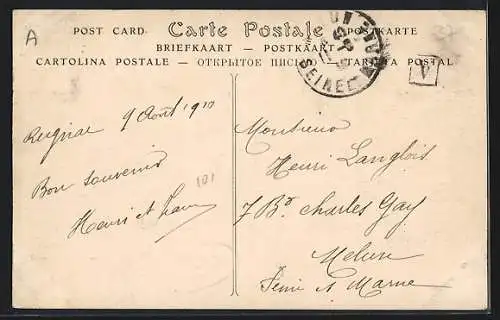 A
POST CARD Carte Postale POSTKARTE
BRIEFKAART — POSTKAART —
CARTOLINA POSTALE — ОТКРЫТОЕ ПИСЬМО — TARJETA POSTAL
SEINE
A
9 Août 1910
Bon souvenir
Henri et
101
Monsieur
Henri Langlois
7 Bd Charles Gay
Melun
Seine et Marne